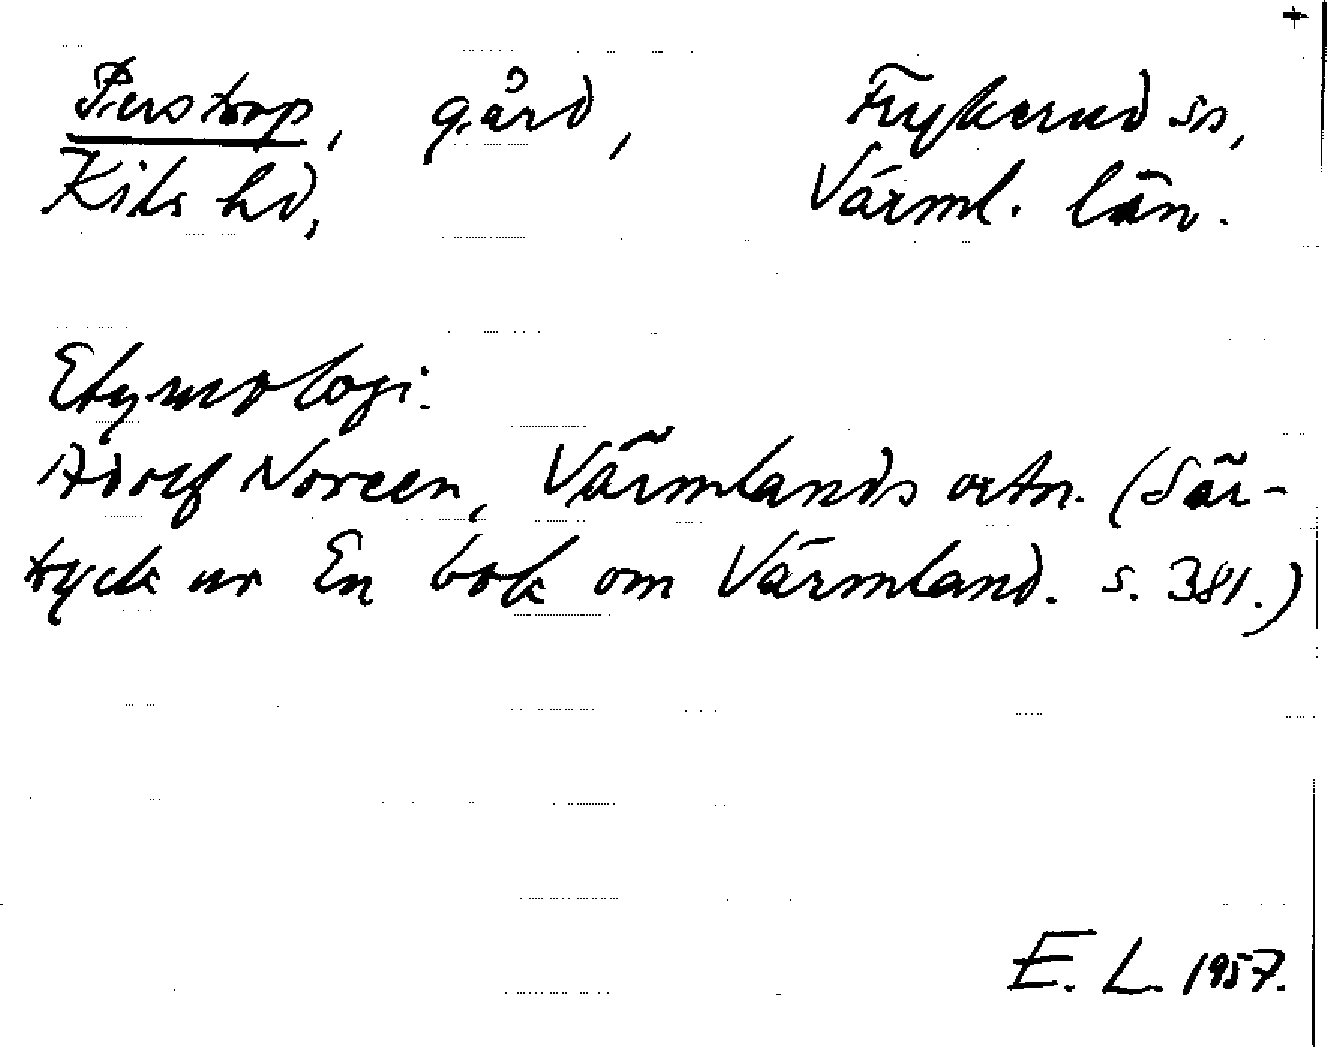 Perstorp, gård, Frykerud sn,
Kils hd, Värml. län.
Etymologi:
Adolf Noreen, Värmlands ortn. (Sär-
tryck ur En bok om Värmland. s. 381.)
E. L. 1957.